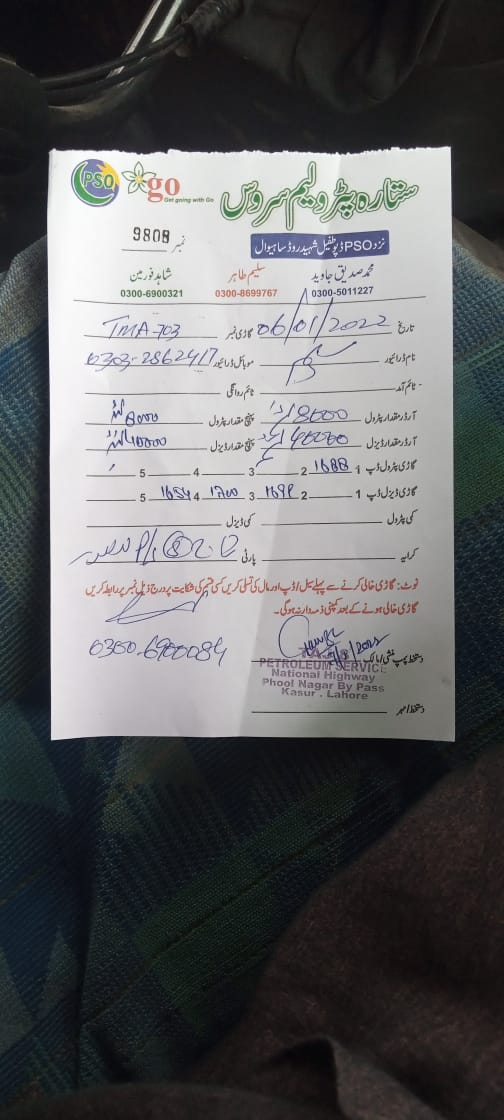 PSO go Get going with Go
ستارہ پٹرولیم سروس
نزد PSO ڈپو طفیل شہید روڈ ساہیوال
نمبر 9808
محمد صدیق جاوید سلیم طاہر شاہد فورمین
0300-5011227 0300-8699767 0300-6900321
تاریخ 06/01/2022 گاڑی نمبر TMA-703
نام ڈرائیور موبائل ڈرائیور 0303-2862417
ٹائم آمد ٹائم روانگی
آرڈر مقدار پٹرول 8000 پہنچ مقدار پٹرول 8000 لیٹر
آرڈر مقدار ڈیزل 40000 پہنچ مقدار ڈیزل 40000 لیٹر
گاڑی پٹرول ڈپ 1 1688 2 3 4 5
گاڑی ڈیزل ڈپ 1 2 1698 3 1700 4 1654 5
کمی پٹرول کمی ڈیزل
کرایہ پارٹی
نوٹ: گاڑی خالی کرنے سے پہلے سیل / ڈپ اور مال کی تسلی کریں کسی قسم کی شکایت پر درج ذیل نمبر پر رابطہ کریں
گاڑی خالی ہونے کے بعد کمپنی ذمہ دار نہ ہوگی۔
0300-6900084
دستخط پمپ منشی / مالک
PETROLEUM SERVICE
National Highway
Phool Nagar By Pass
Kasur . Lahore
دستخط / مہر